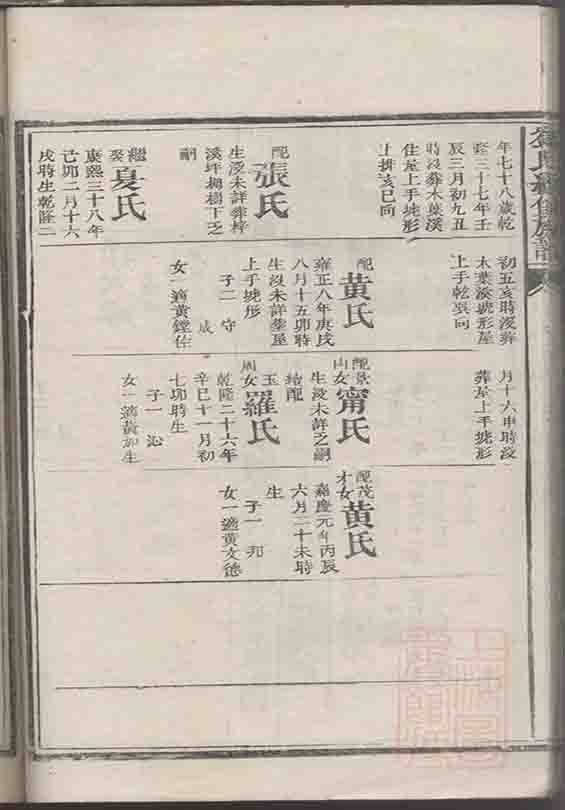 年七十八歲乾
隆三十七年壬
辰三月初九丑
時沒葬木葉溪
住屋上手垅形
上排亥巳向
配
張氏
生沒未詳葬梓
溪坪楓樹下乏
嗣
繼娶
夏氏
康熙三十八年
己卯二月十六
戌時生乾隆二
初五亥時沒葬
木葉溪號形屋
上手乾巽向
配
黃氏
雍正八年庚戌
八月十五卯時
生沒未詳葬屋
上手垅形
子二 守
成
女一適黃鏜佐
月十六申時沒
葬屋上手垅形
配景山女
甯氏
生沒未詳乏嗣
續配
玉周女
羅氏
乾隆二十六年
辛巳十一月初
七卯時生
子一 沁
女一適黃如生
配茂才女
黃氏
嘉慶元年丙辰
六月二十未時
生
子一 邦
女一適黃文德